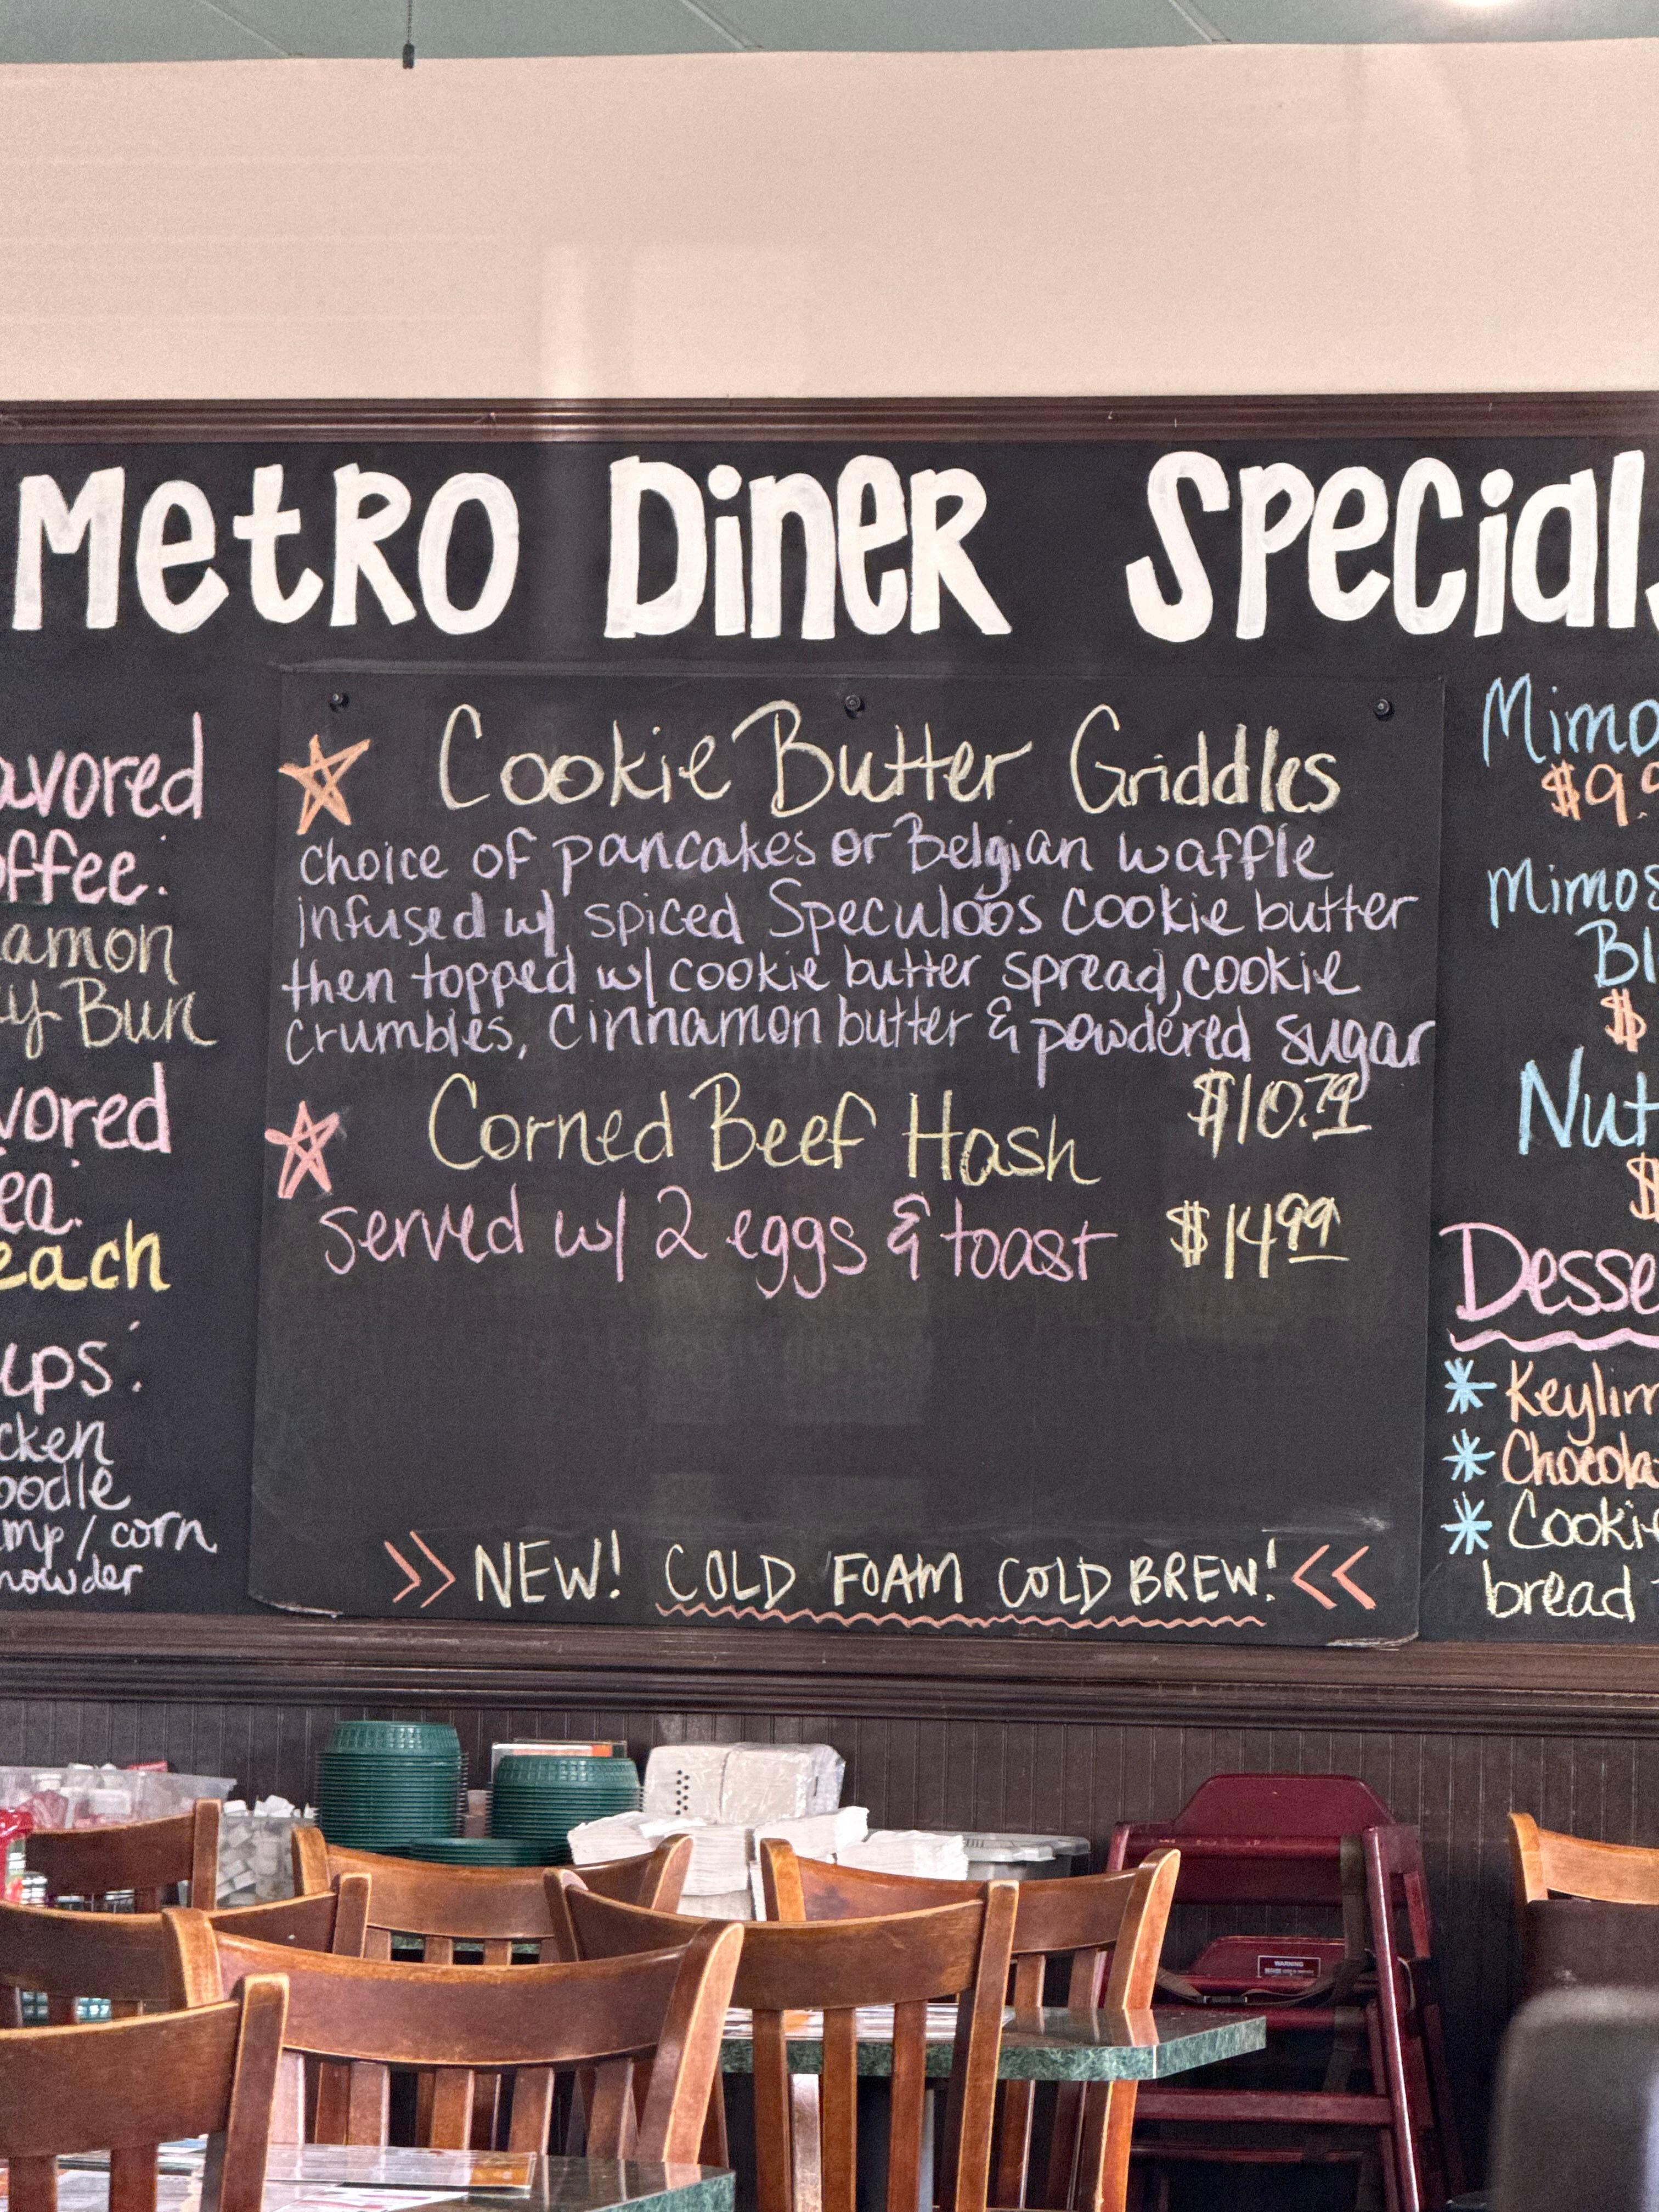 Metro Diner Specials
avored
offee:
namon
y Bun
vored
ea:
each
ups:
cken
oodle
mp/corn
howder
Cookie Butter Griddles
choice of pancakes or Belgian waffle
infused w/ spiced Speculoos cookie butter
then topped w/ cookie butter spread, cookie
crumbles, cinnamon butter & powdered sugar
$10.79
Corned Beef Hash
served w/ 2 eggs & toast $14.99
>> NEW! COLD FOAM COLD BREW! <<
Mimo
$9.9
Mimos
Bl
$
Nut
$
Desse
* Keylim
* Chocola
* Cookie
bread
WARNING